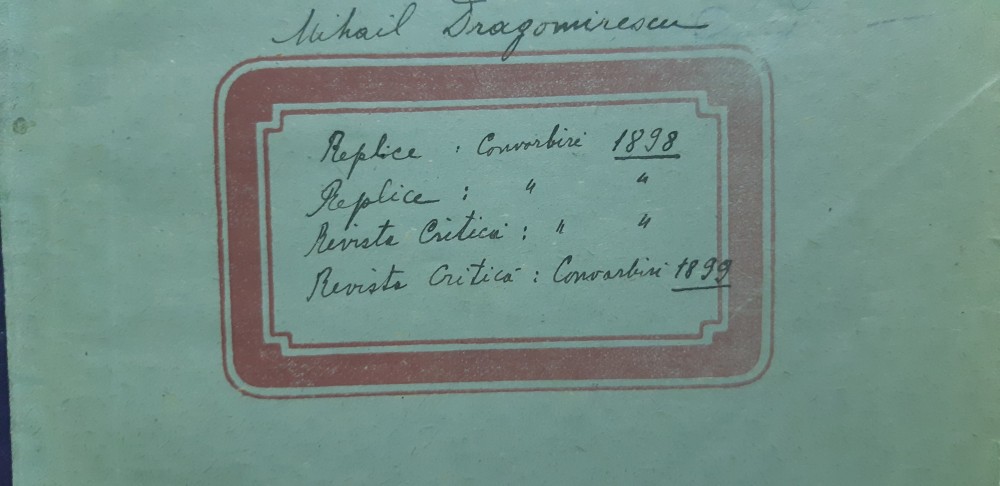 Mihail Dragomirescu
Replice : Convorbiri 1898
Replice : " "
Revista Critică : " "
Revista Critică : Convorbiri 1899